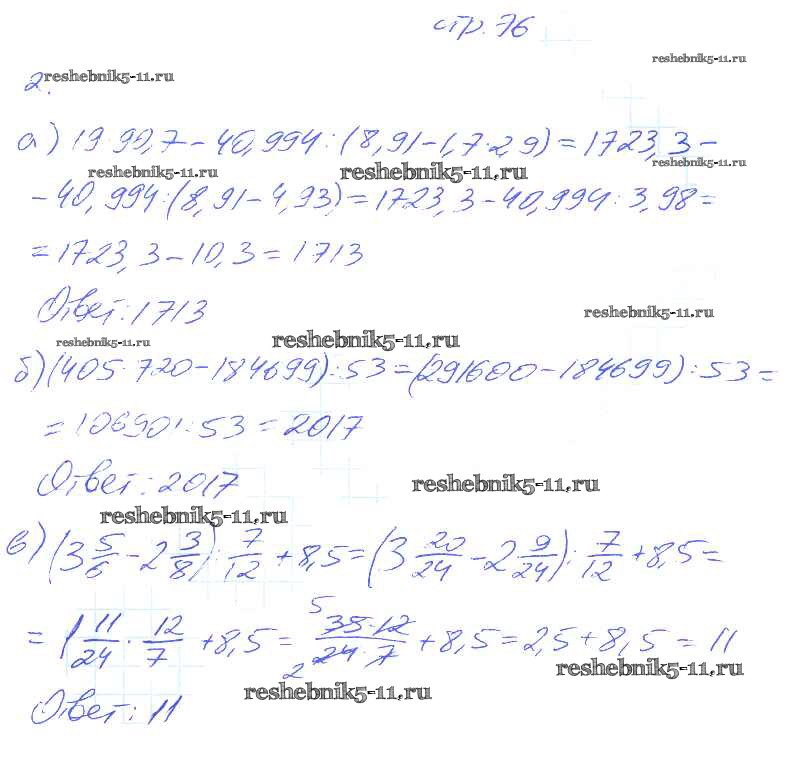 стр. 76
reshebnik5-11.ru
reshebnik5-11.ru
2.
а) 19·90,7 - 40,994 : (8,91 - 1,7·2,9) = 1723,3 -
reshebnik5-11.ru
reshebnik5-11.ru
reshebnik5-11.ru
- 40,994 : (8,91 - 4,93) = 1723,3 - 40,994 : 3,98 =
= 1723,3 - 10,3 = 1713
Ответ: 1713
reshebnik5-11.ru
reshebnik5-11.ru
reshebnik5-11.ru
б) (405·720 - 184699) : 53 = (291600 - 184699) : 53 =
= 106901 : 53 = 2017
Ответ: 2017
reshebnik5-11.ru
reshebnik5-11.ru
в) (3 5/6 - 2 3/8) : 7/12 + 8,5 = (3 20/24 - 2 9/24) : 7/12 + 8,5 =
= 1 11/24 · 12/7 + 8,5 = 5 35·12/2 24·7 + 8,5 = 2,5 + 8,5 = 11
reshebnik5-11.ru
reshebnik5-11.ru
Ответ: 11